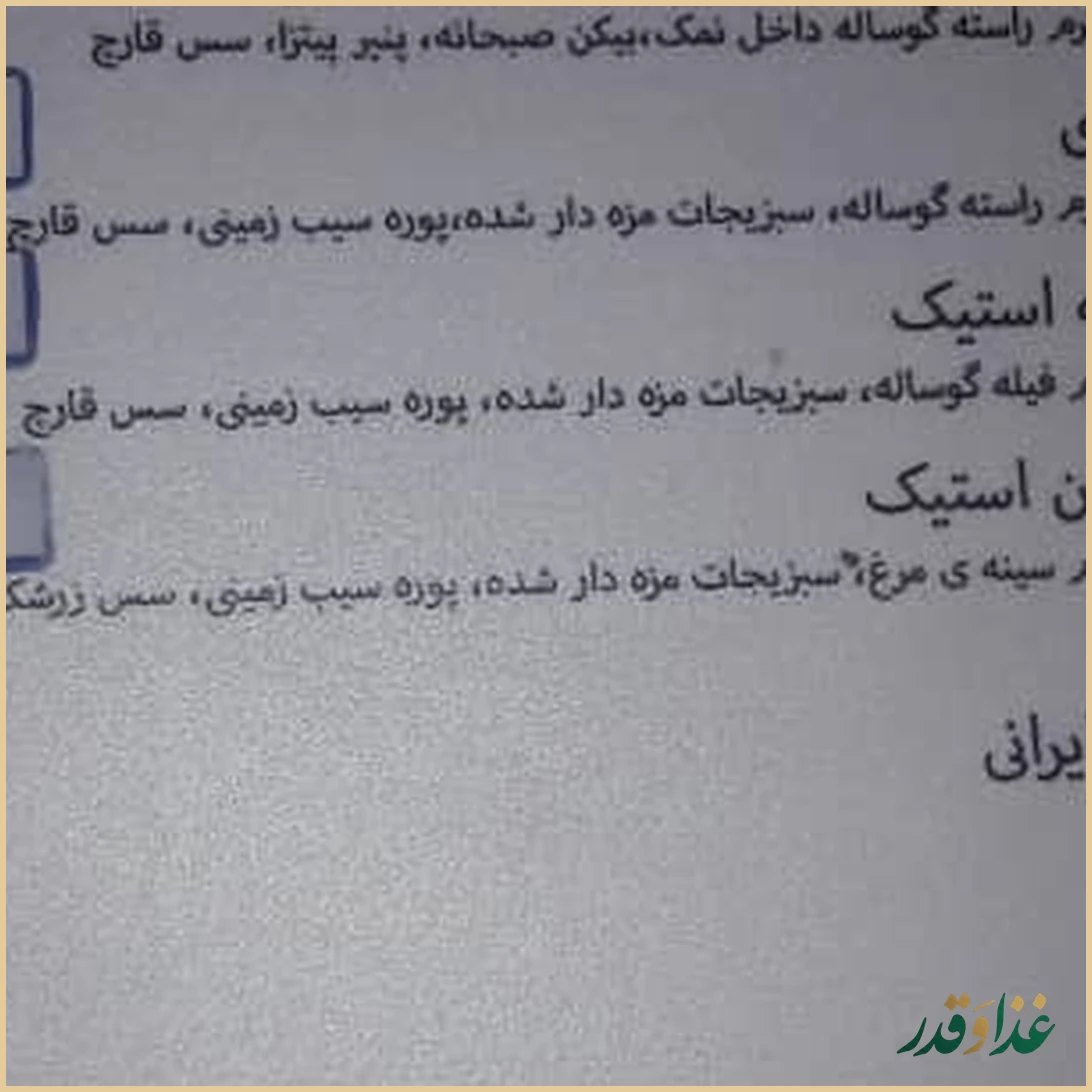 راسته گوساله داخل نمک،بیکن صبحانه، پنیر پیتزا، سس قارچ
راسته گوساله، سبزیجات مزه دار شده،پوره سیب زمینی، سس قارچ
استیک
فیله گوساله، سبزیجات مزه دار شده، پوره سیب زمینی، سس قارچ
استیک
سینه ی مرغ، سبزیجات مزه دار شده، پوره سیب زمینی، سس
غذا و قدر